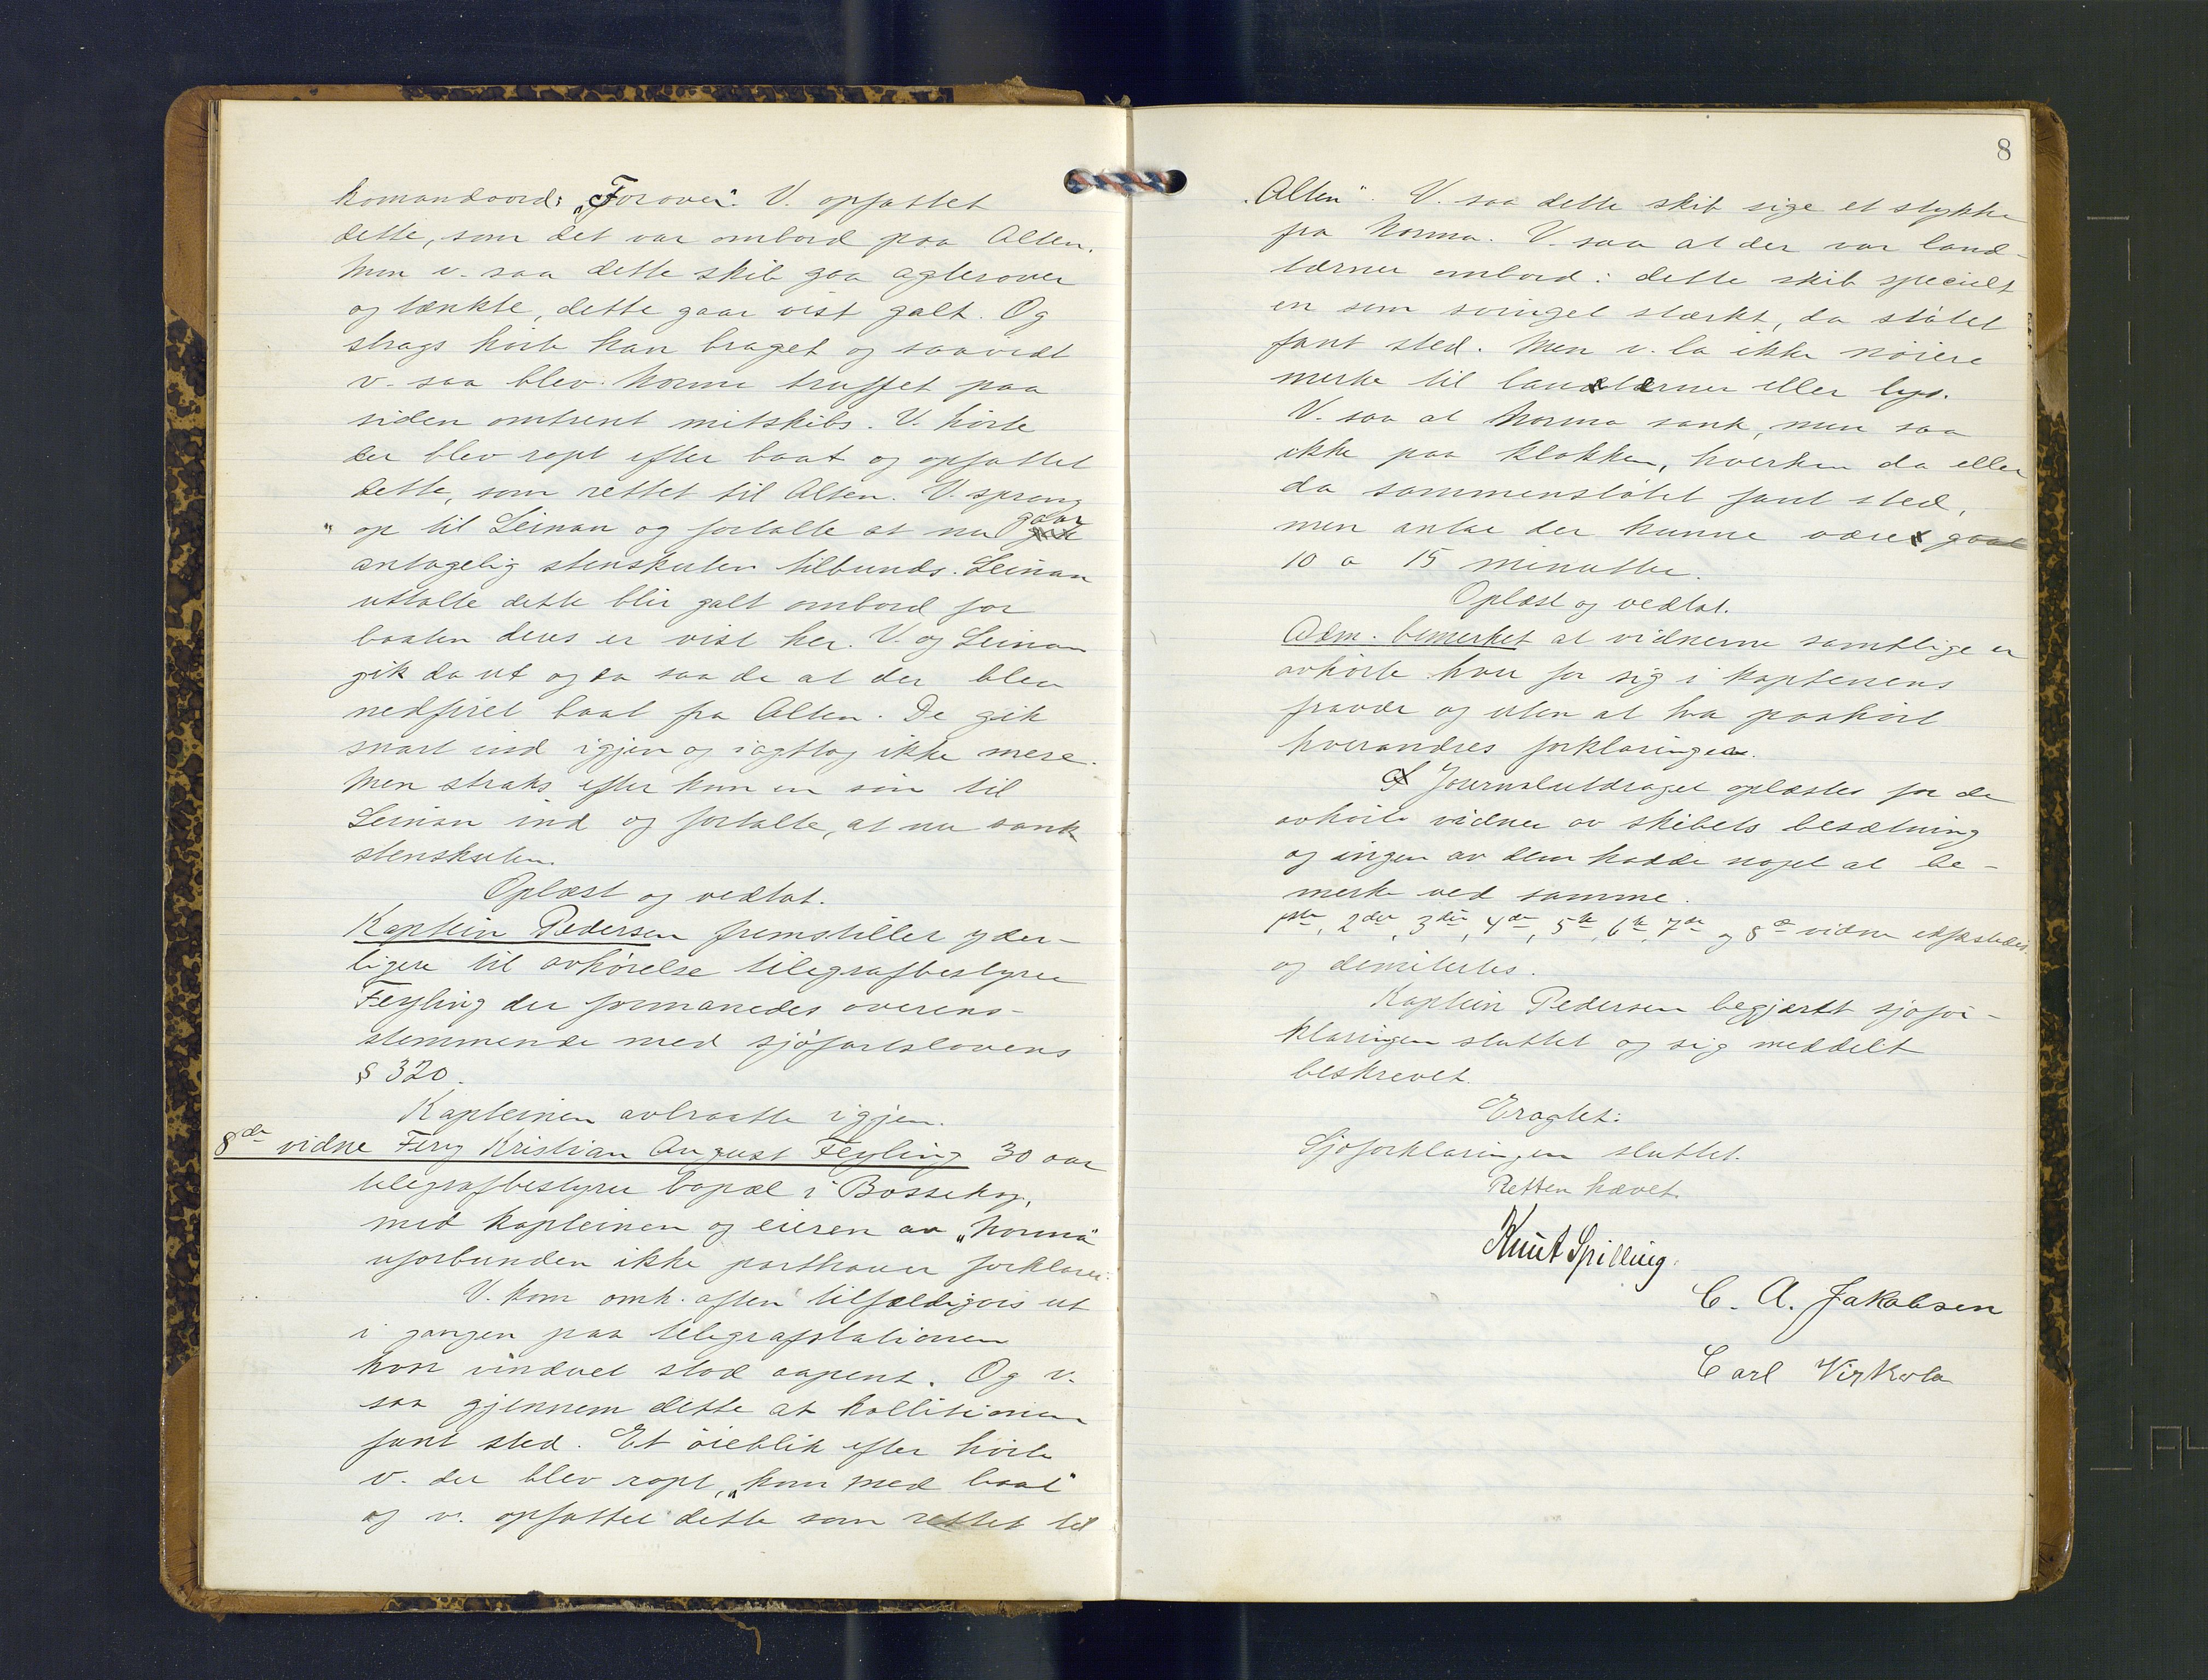 komandoord: „Forover". V. opfattet
dette, som det var ombord paa Alten.
Men v. saa dette skib gaa agterover
og tænkte, dette gaar vist galt. Og
strags hörte han braget og saavidt
v. saa blev Norma truffet paa
siden omtrent mitskibs. V. hörte
der blev ropt efter baat og opfattet
dette, som rettet til Alten. V. sprang
op til Leinan og fortalte at nu gaar
antagelig stenskuten tilbunds. Leinan
uttalte dette blir galt ombord for
baaten deres er vist her. V. og Leinan
gik da ut og da saa de at der blev
nedfiret baat fra Alten. De gik
snart ind igjen og iagttog ikke mere.
Men straks efter kom en inn til
Leinan ind og fortalte, at nu sank
stenskuten.
Oplæst og vedtat.
Kaptein Pedersen fremstiller yder-
ligere til avhörelse telegrafbestyrer
Feyling der formanedes overens-
stemmende med sjöfartslovens
§ 320.
Kapteinen avtraatte igjen.
8de vidne Ferg Kristian August Feyling 30 aar
telegrafbestyrer bopæl i Bossekop,
med kapteinen og eieren av „Norma"
uforbunden ikke parthaver forklarer:
V. kom omh. aften tilfældigvis ut
i gangen paa telegrafstationen
hvor vinduet stod aapent. Og v.
saa gjennem dette at kollisionen
fant sted. Et öieblik efter hörte
v. der blev ropt, „kom med baat"
og v. opfattet dette som rettet til
8
„Alten". V. saa dette skib sige et stykke
fra Norma. V. saa at der var land-
tærner ombord i dette skib specielt
en som svinget stærkt, da stötet
fant sted. Men v. la ikke nöiere
merke til lanterner eller lys.
V. saa at Norma sank, men saa
ikke paa klokken, hverken da eller
da sammenstötet fant sted,
men antar der kunne være gaat
10 a 15 minutter.
Oplæst og vedtat.
Adm. bemerket at vidnerne samtlige er
avhörte hver for sig i kapteinens
fravær og uten at ha paahört
hverandres forklaringer.
Journalutdraget oplæstes for de
avhörte vidner av skibets besætning
og ingen av dem hadde noget at be-
merke ved samme.
1ste, 2det, 3die, 4de, 5te, 6te, 7de og 8de vidne edfæstedes
og demitertes.
Kaptein Pedersen begjærte sjöfor-
klaringen sluttet og sig meddelt
beskrevet.
Eragtet:
Sjöforklaringen sluttet.
Retten hævet.
Knut Spilling.
C. A. Jakobsen
Carl Virkola